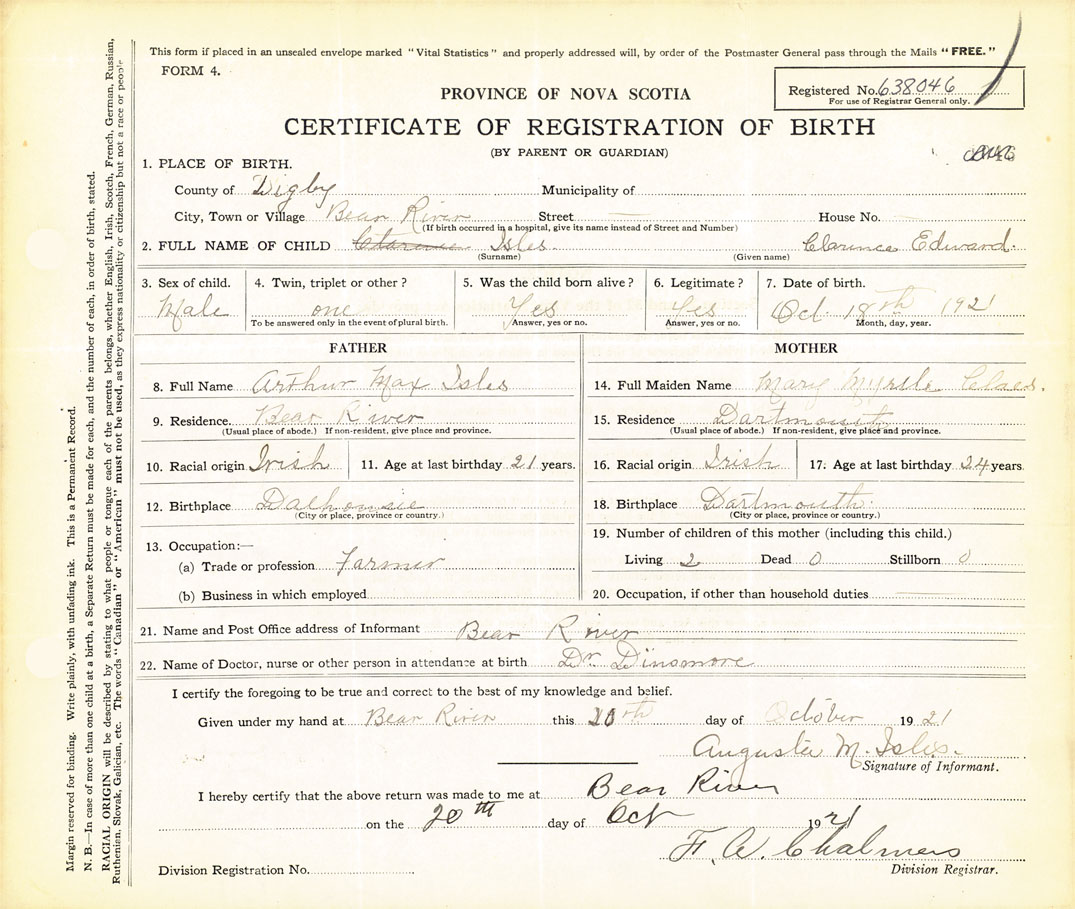 This form if placed in an unsealed envelope marked "Vital Statistics" and properly addressed will, by order of the Postmaster General pass through the Mails "FREE."
FORM 4.
Registered No. 638046
For use of Registrar General only.
PROVINCE OF NOVA SCOTIA
CERTIFICATE OF REGISTRATION OF BIRTH
(BY PARENT OR GUARDIAN)
1. PLACE OF BIRTH.
County of Digby Municipality of
City, Town or Village Bear River Street — House No. —
(If birth occurred in a hospital, give its name instead of Street and Number)
2. FULL NAME OF CHILD Clarence Isles. Clarence Edward.
(Surname) (Given name)
3. Sex of child. 4. Twin, triplet or other? 5. Was the child born alive? 6. Legitimate? 7. Date of birth.
Male one Yes Yes Oct. 18th 1921
To be answered only in the event of plural birth. Answer, yes or no. Answer, yes or no. Month, day, year.
FATHER
8. Full Name Arthur Max Isles
9. Residence. Bear River
(Usual place of abode.) If non-resident, give place and province.
10. Racial origin Irish 11. Age at last birthday 21 years.
12. Birthplace Dalhousie
(City or place, province or country.)
13. Occupation:—
(a) Trade or profession Farmer
(b) Business in which employed
MOTHER
14. Full Maiden Name Mary Myrtle
15. Residence Dartmouth
(Usual place of abode.) If non-resident, give place and province.
16. Racial origin Irish 17. Age at last birthday 24 years.
18. Birthplace Dartmouth
(City or place, province or country.)
19. Number of children of this mother (including this child.)
Living 2 Dead 0 Stillborn 0
20. Occupation, if other than household duties —
21. Name and Post Office address of Informant Bear River
22. Name of Doctor, nurse or other person in attendance at birth Dr. Dinsmore
I certify the foregoing to be true and correct to the best of my knowledge and belief.
Given under my hand at Bear River this 20th day of October 1921
Augusta M. Isles.
Signature of Informant.
I hereby certify that the above return was made to me at Bear River
on the 20th day of Oct 1921
F. W. Chalmers
Division Registration No. Division Registrar.
Margin reserved for binding. Write plainly, with unfading ink. This is a Permanent Record.
N. B.—In case of more than one child at a birth, a Separate Return must be made for each, and the number of each, in order of birth, stated.
RACIAL ORIGIN will be described by stating to what people or tongue each of the parents belongs, whether English, Irish, Scotch, French, German, Russian,
Ruthenian, Slovak, Galician, etc. The words "Canadian" or "American" must not be used, as they express nationality or citizenship but not a race or people